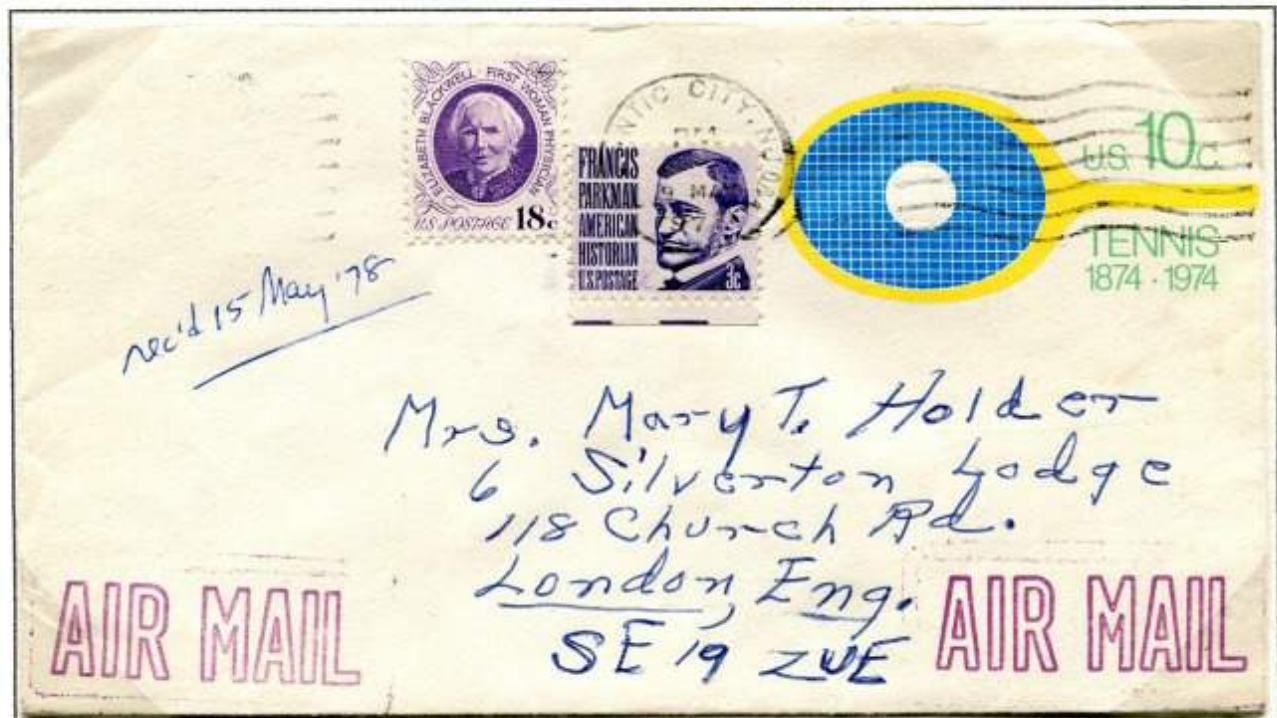 ELIZABETH BLACKWELL FIRST WOMAN PHYSICIAN
U.S. POSTAGE 18c
FRANCIS
PARKMAN
AMERICAN
HISTORIAN
U.S. POSTAGE 3c
NTIC CITY, NJ
U.S. 10c.
TENNIS
1874 · 1974
rec'd 15 May '78
Mrs. Mary T. Holder
6 Silverton Lodge
118 Church Rd.
London, Eng.
SE 19 2UE
AIR MAIL
AIR MAIL